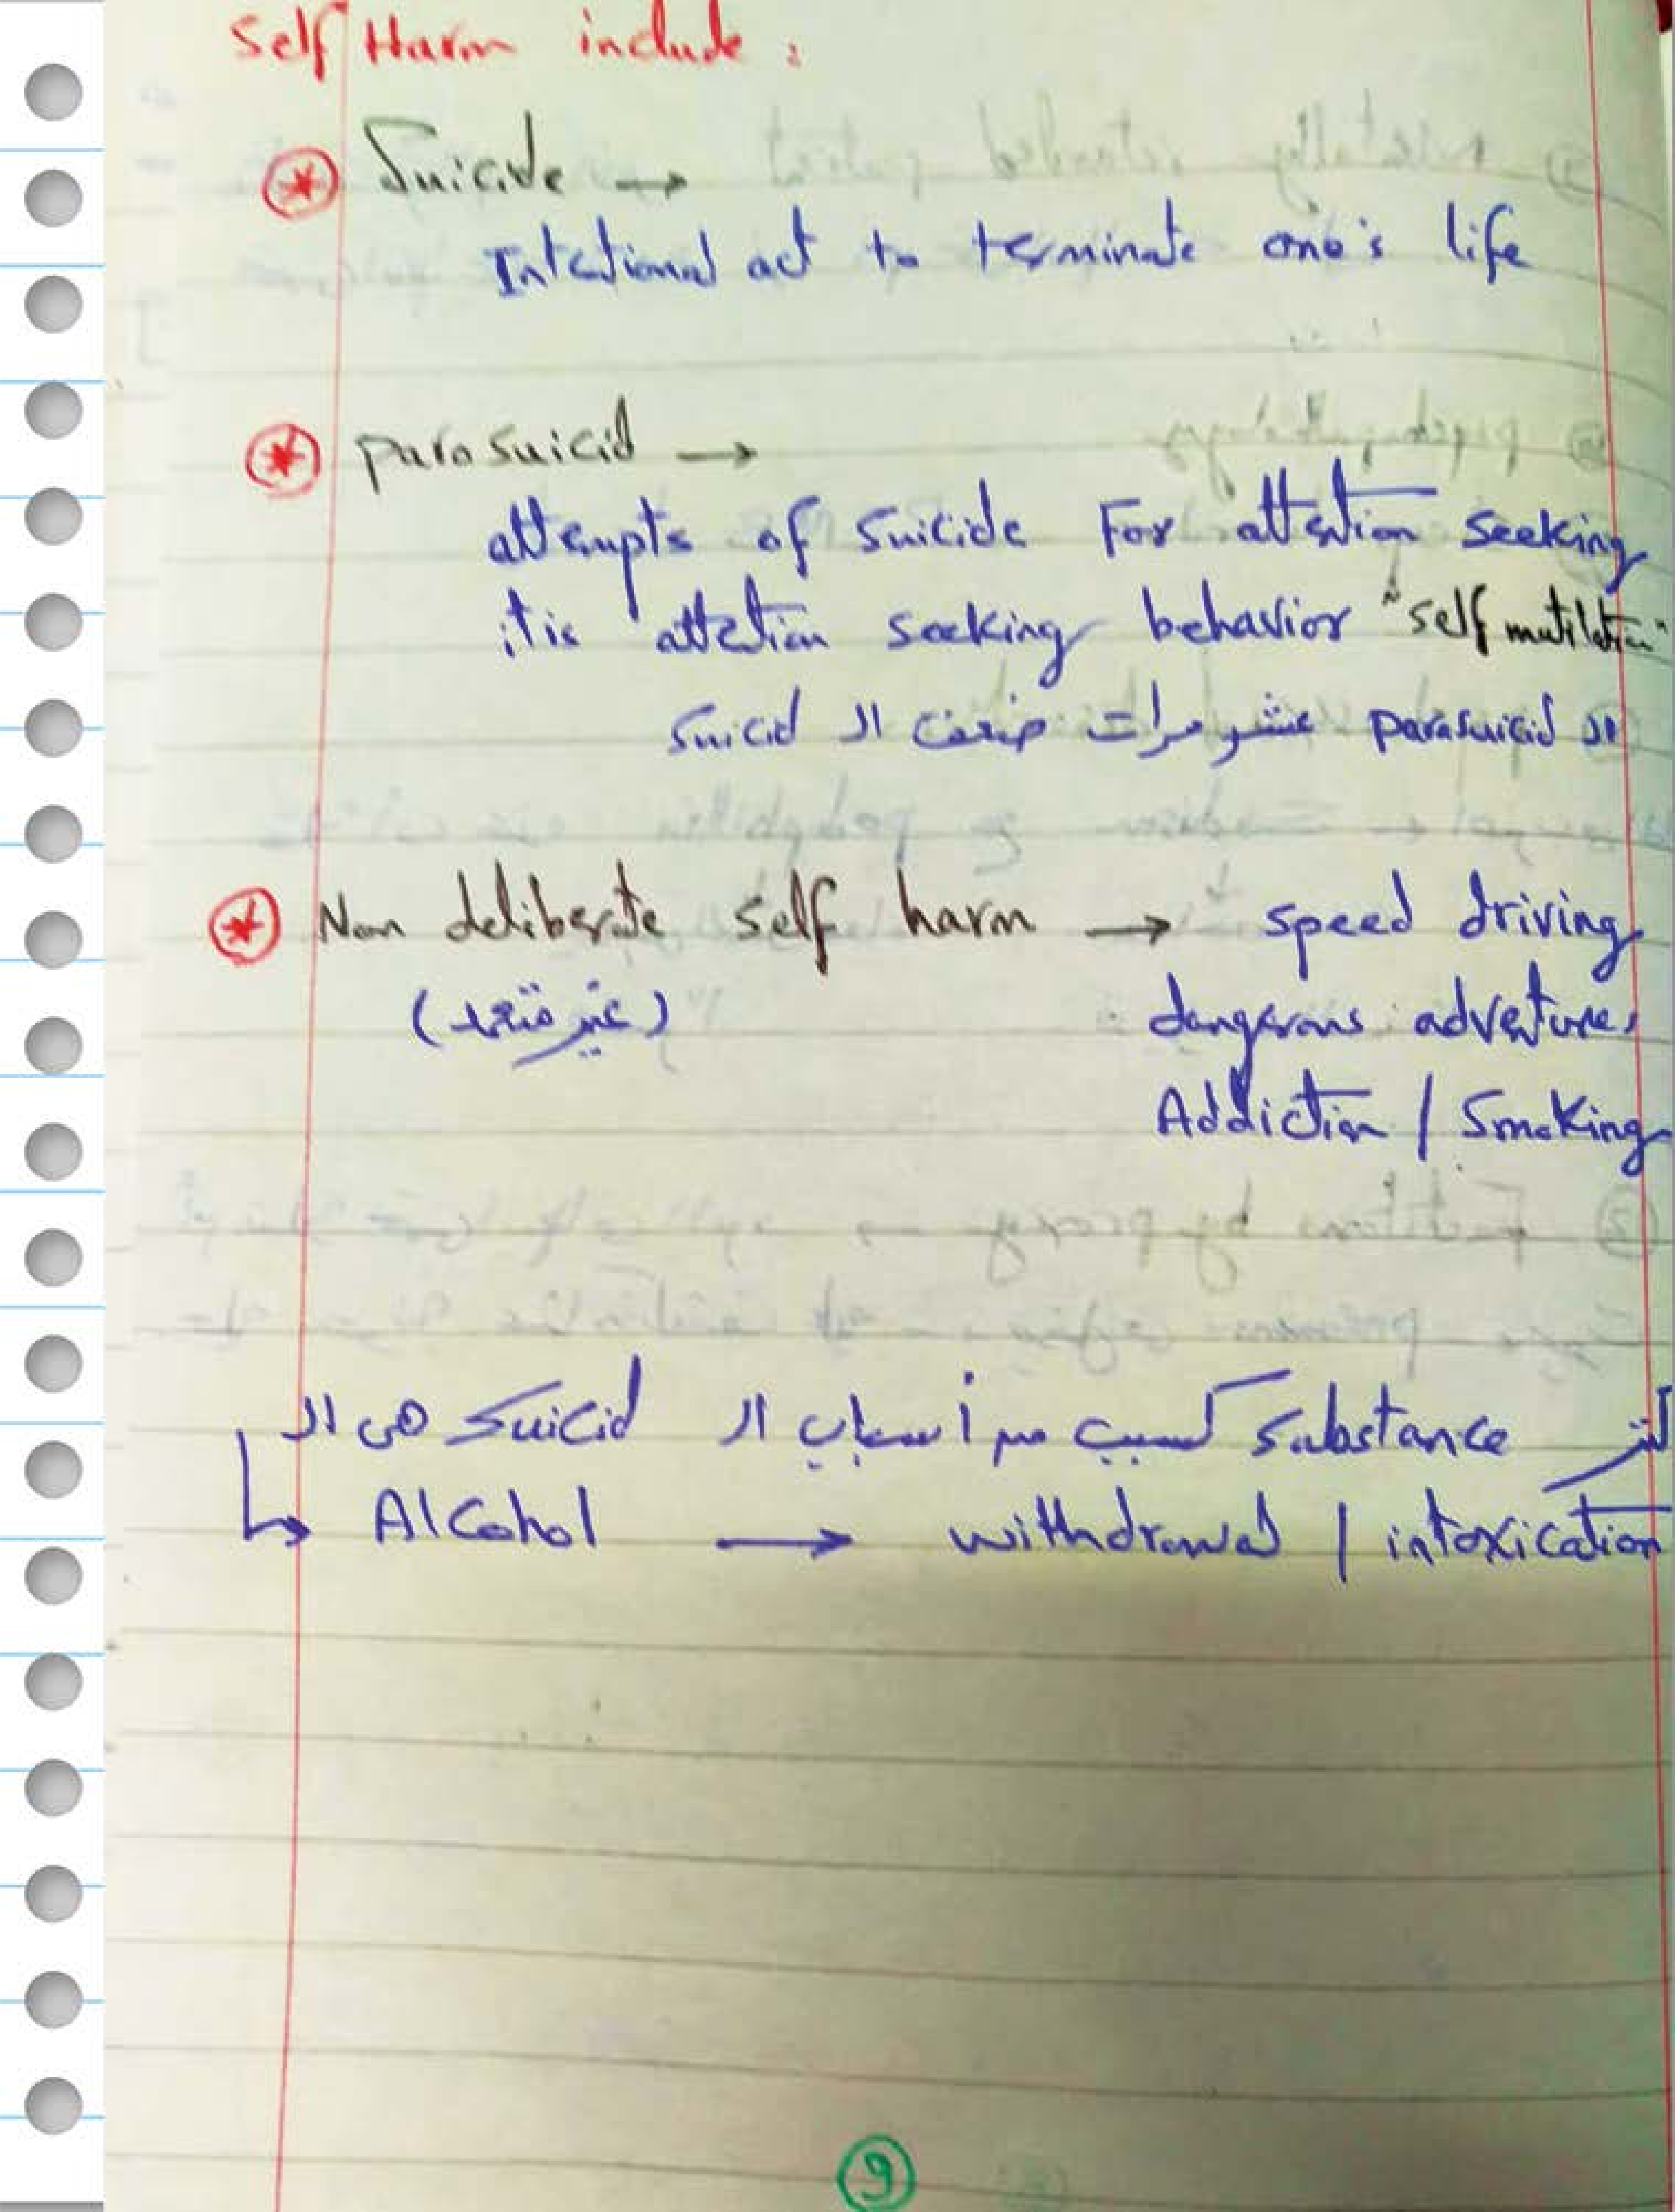 Self Harm include :
* Suicide →
Intentional act to terminate one's life
* parasuicid →
attempts of suicide For attention seeking
it is attention seeking behavior "self mutilation"
ال parasuicid عشر مرات ضعف ال suicid
* Non deliberate self harm → speed driving
(غير متعمد) dangerous adventures
Addiction / Smoking
أكتر substance كسبب من أسباب ال suicid هى ال
↳ Alcohol → withdrawal / intoxication
9